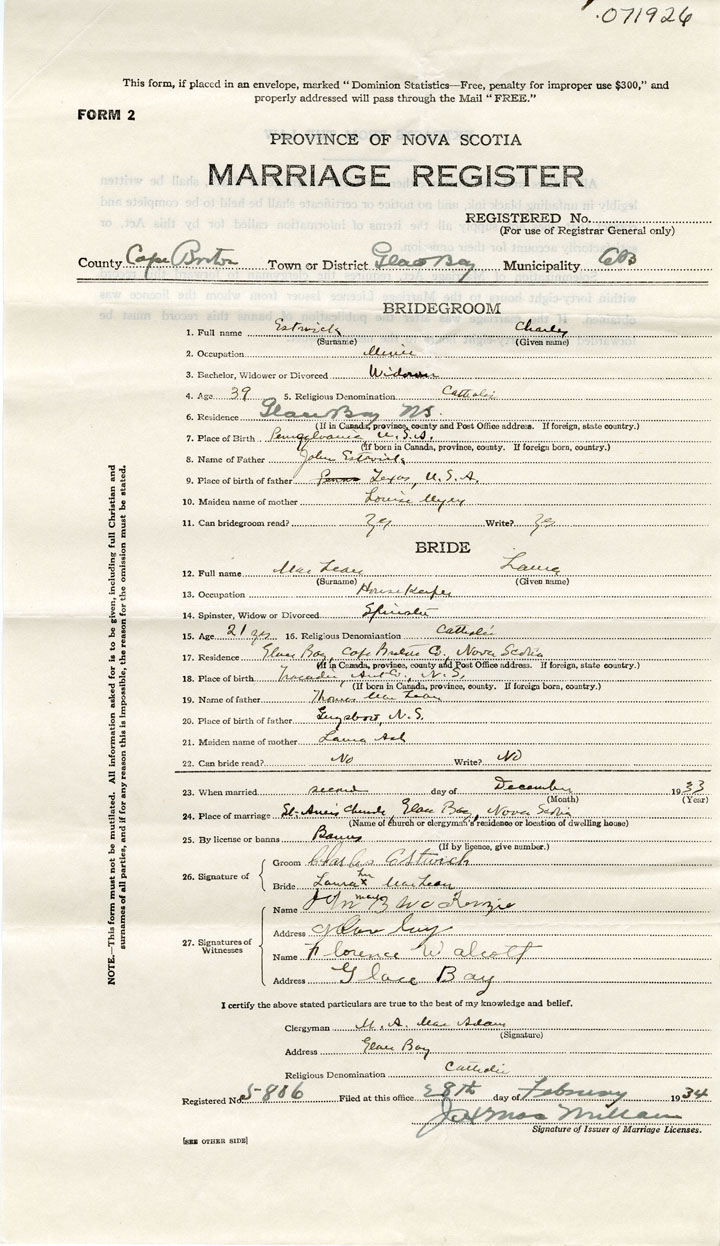 071926
This form, if placed in an envelope, marked "Dominion Statistics—Free, penalty for improper use $300," and
properly addressed will pass through the Mail "FREE."
FORM 2
PROVINCE OF NOVA SCOTIA
MARRIAGE REGISTER
REGISTERED No.
(For use of Registrar General only)
County Cape Breton Town or District Glace Bay Municipality CB
BRIDEGROOM
1. Full name Estwick Charley
(Surname) (Given name)
2. Occupation Miner
3. Bachelor, Widower or Divorced Widower
4. Age 39 5. Religious Denomination Catholic
6. Residence Glace Bay NS.
(If in Canada, province, county and Post Office address. If foreign, state country.)
7. Place of Birth Pennsylvania, U.S.A.
(If born in Canada, province, county. If foreign born, country.)
8. Name of Father John Estwick
9. Place of birth of father Texas, U.S.A.
10. Maiden name of mother Louise Myer
11. Can bridegroom read? Yes Write? Yes
BRIDE
12. Full name MacLean Laura
(Surname) (Given name)
13. Occupation Housekeeper
14. Spinster, Widow or Divorced Spinster
15. Age 21 yrs 16. Religious Denomination Catholic
17. Residence Glace Bay, Cape Breton Co., Nova Scotia
(If in Canada, province, county and Post Office address. If foreign, state country.)
18. Place of birth Tracadie, Ant. Co., N.S.
(If born in Canada, province, county. If foreign born, country.)
19. Name of father Thomas MacLean
20. Place of birth of father Guysboro, N.S.
21. Maiden name of mother Laura Ash
22. Can bride read? No Write? No
23. When married second day of December 1933
(Month) (Year)
24. Place of marriage St. Anne's Church, Glace Bay, Nova Scotia
(Name of church or clergyman's residence or location of dwelling house)
25. By license or banns Banns
(If by licence, give number.)
26. Signature of Groom Charles Estwick
Bride Laura her x mark MacLean
27. Signatures of Witnesses Name John B McKenzie
Address Glace Bay
Name Florence Walcott
Address Glace Bay
I certify the above stated particulars are true to the best of my knowledge and belief.
Clergyman M. A. MacAdam
(Signature)
Address Glace Bay
Religious Denomination Catholic
Registered No. 5-806 Filed at this office 28th day of February 1934
MacMillan
Signature of Issuer of Marriage Licenses.
[SEE OTHER SIDE]
NOTE.—This form must not be mutilated. All information asked for is to be given, including full Christian and
surnames of all parties, and if for any reason this is impossible, the reason for the omission must be stated.